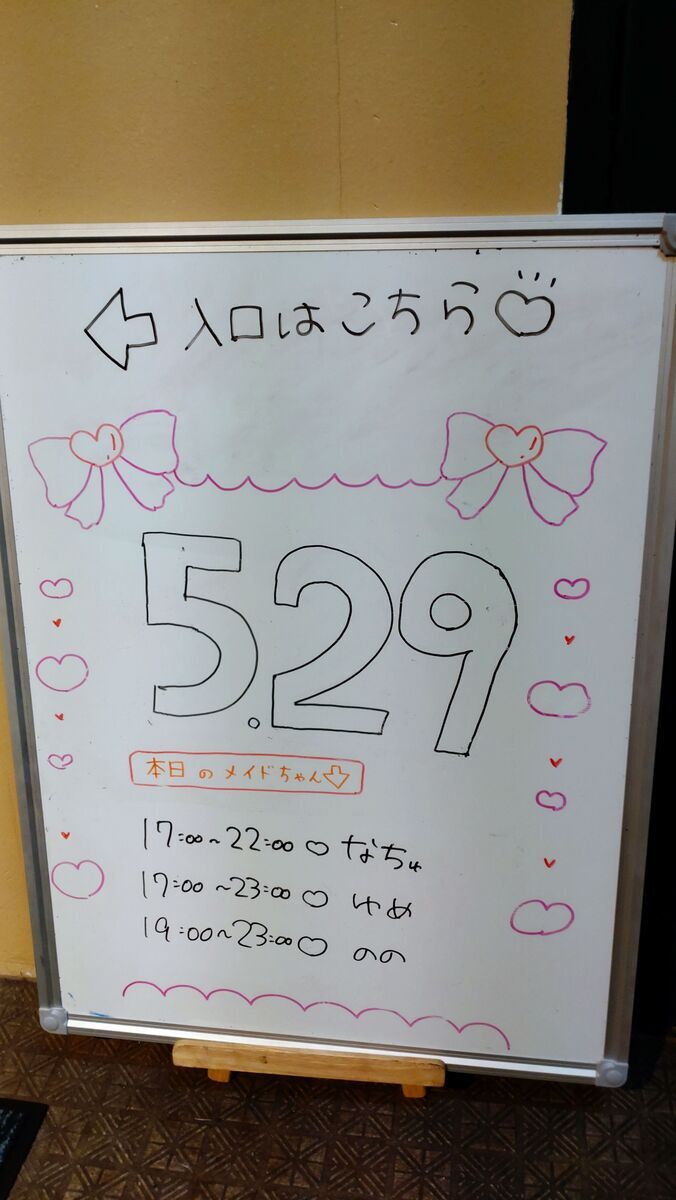 入口はこちら♡
5.29
本日のメイドちゃん
17:00~22:00♡なちゅ
17:00~23:00♡ゆめ
19:00~23:00♡のの